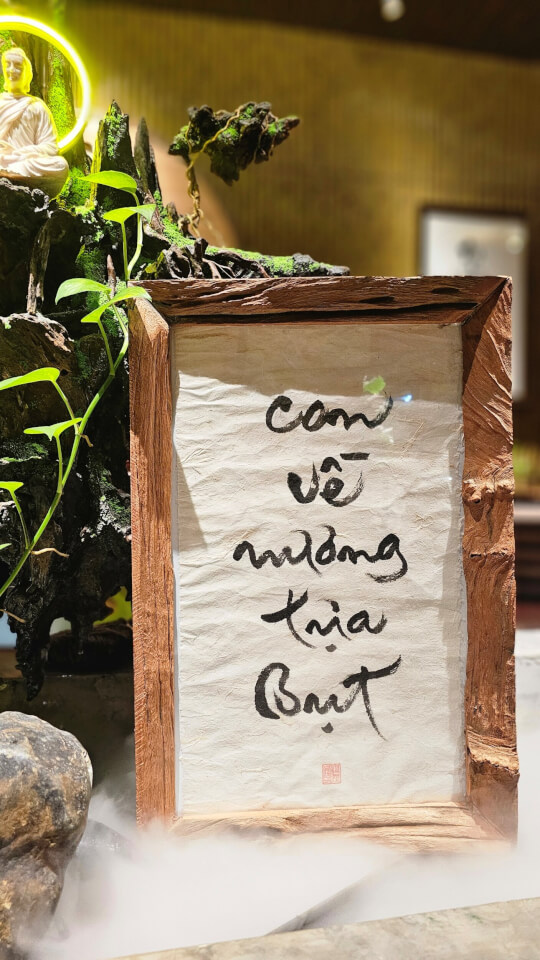 con
về
nương
tựa
Bụt